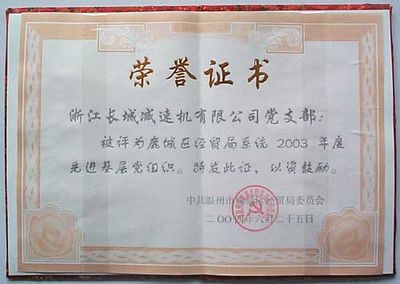 荣誉证书
浙江长城减速机有限公司党支部:
被评为鹿城区经贸局系统 2003 年度
先进基层党组织。特发此证,以资鼓励。
中共温州市鹿城区经贸局委员会
二〇〇四年六月二十五日